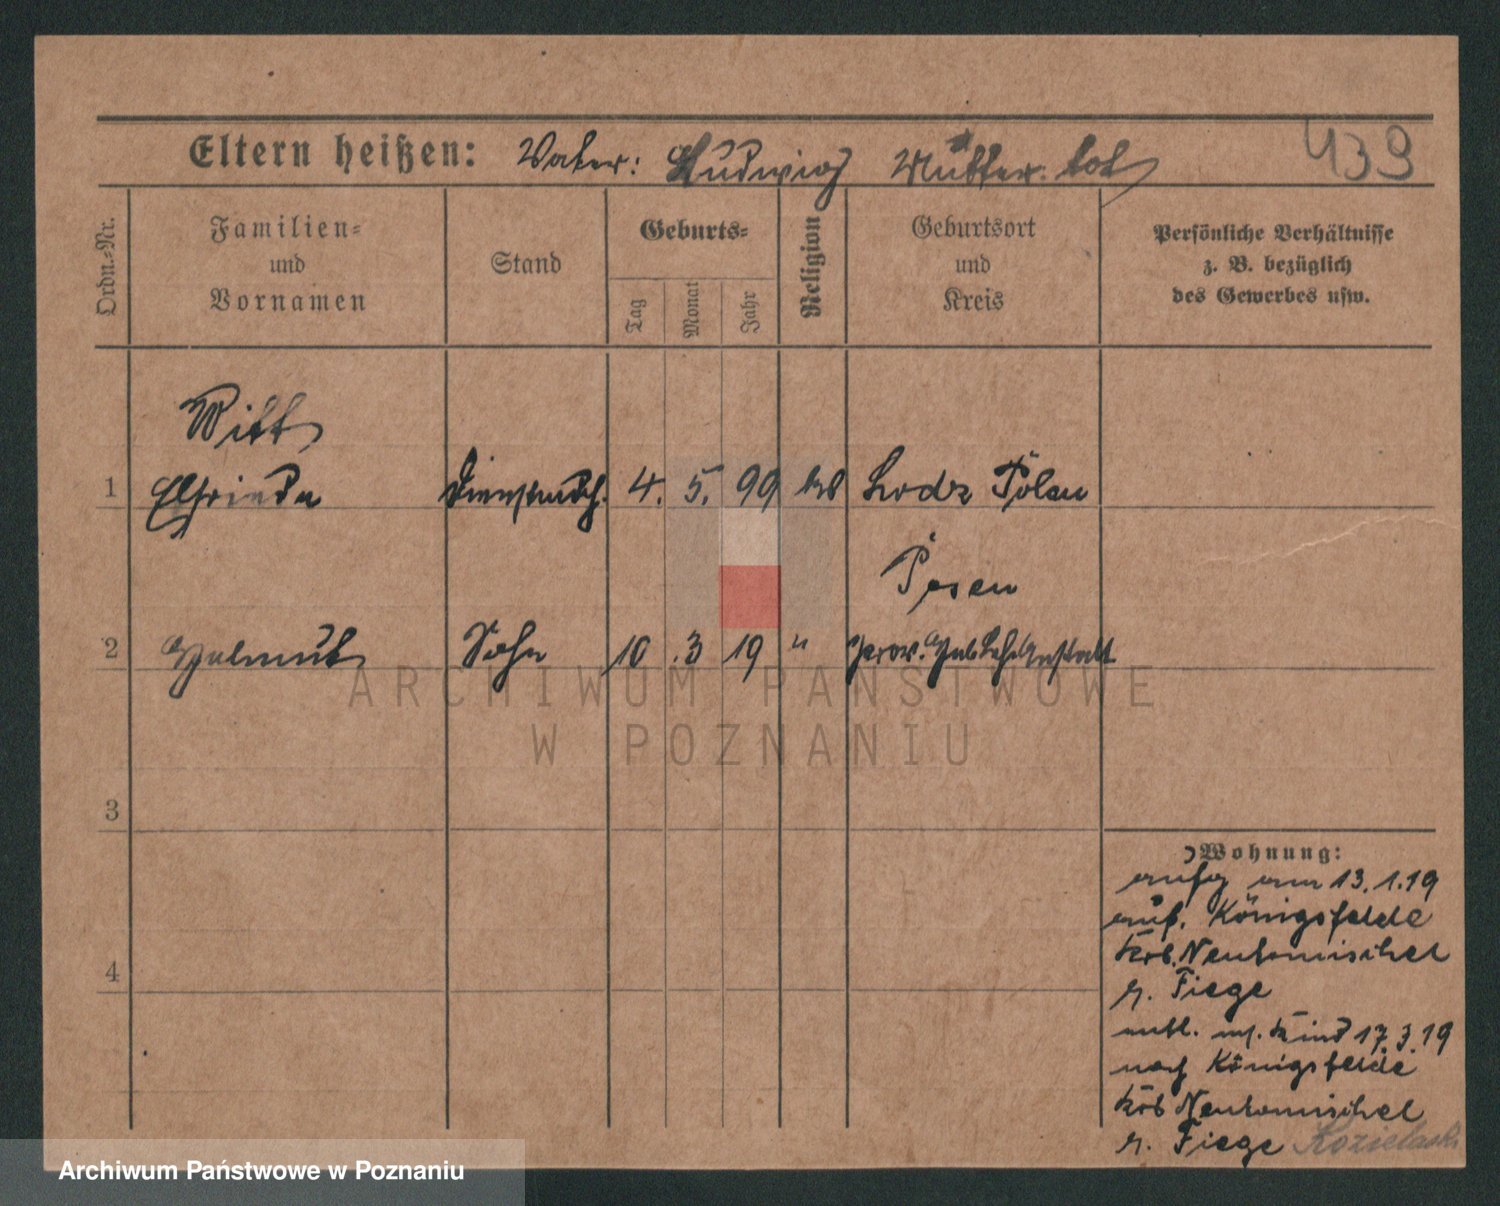 Eltern heißen: Vater: Ludwig Mutter: tot
439
Ordn.-Nr.
Familien-
und
Vornamen
Stand
Geburts-
Tag
Monat
Jahr
Religion
Geburtsort
und
Kreis
Persönliche Verhältnisse
z. B. bezüglich
des Gewerbes usw.
Witt
1 Elfrieda Dienstmdch. 4. 5. 99 Lodz Polen
Posen
2 Helmut Sohn 10 .3 19 " Prov. Anstalt
ARCHIWUM PAŃSTWOWE
W POZNANIU
3
4
Wohnung:
aufg am 13.1.19
aus. Königsfelde
Krb. Neutomischel
b. Fiege
entl. m. Kind 17.3.19
nach Königsfelde
Krb Neutomischel
b. Fiege Kozielaski
Archiwum Państwowe w Poznaniu